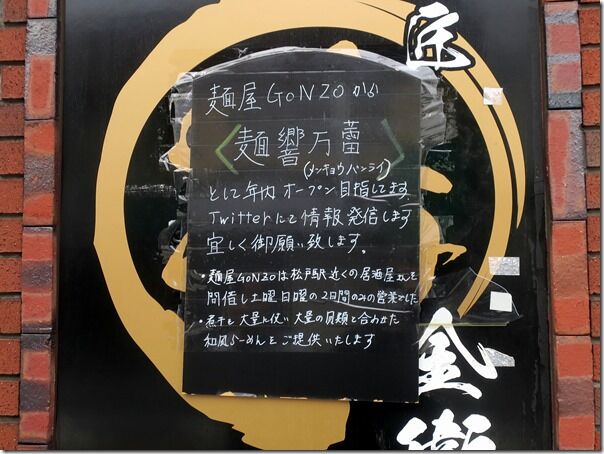 匠
麺屋GONZOから
〈麺響万蕾〉
(メンキョウバンライ)
として年内オープン目指してます
Twitterにて情報発信します
宜しく御願い致します。
・麺屋GONZOは松戸駅近くの居酒屋さんを
間借し土曜日曜の2日間のみの営業でした
・煮干を大量に使い大量の貝類と合わせた
和風らーめんをご提供いたします
金
衛